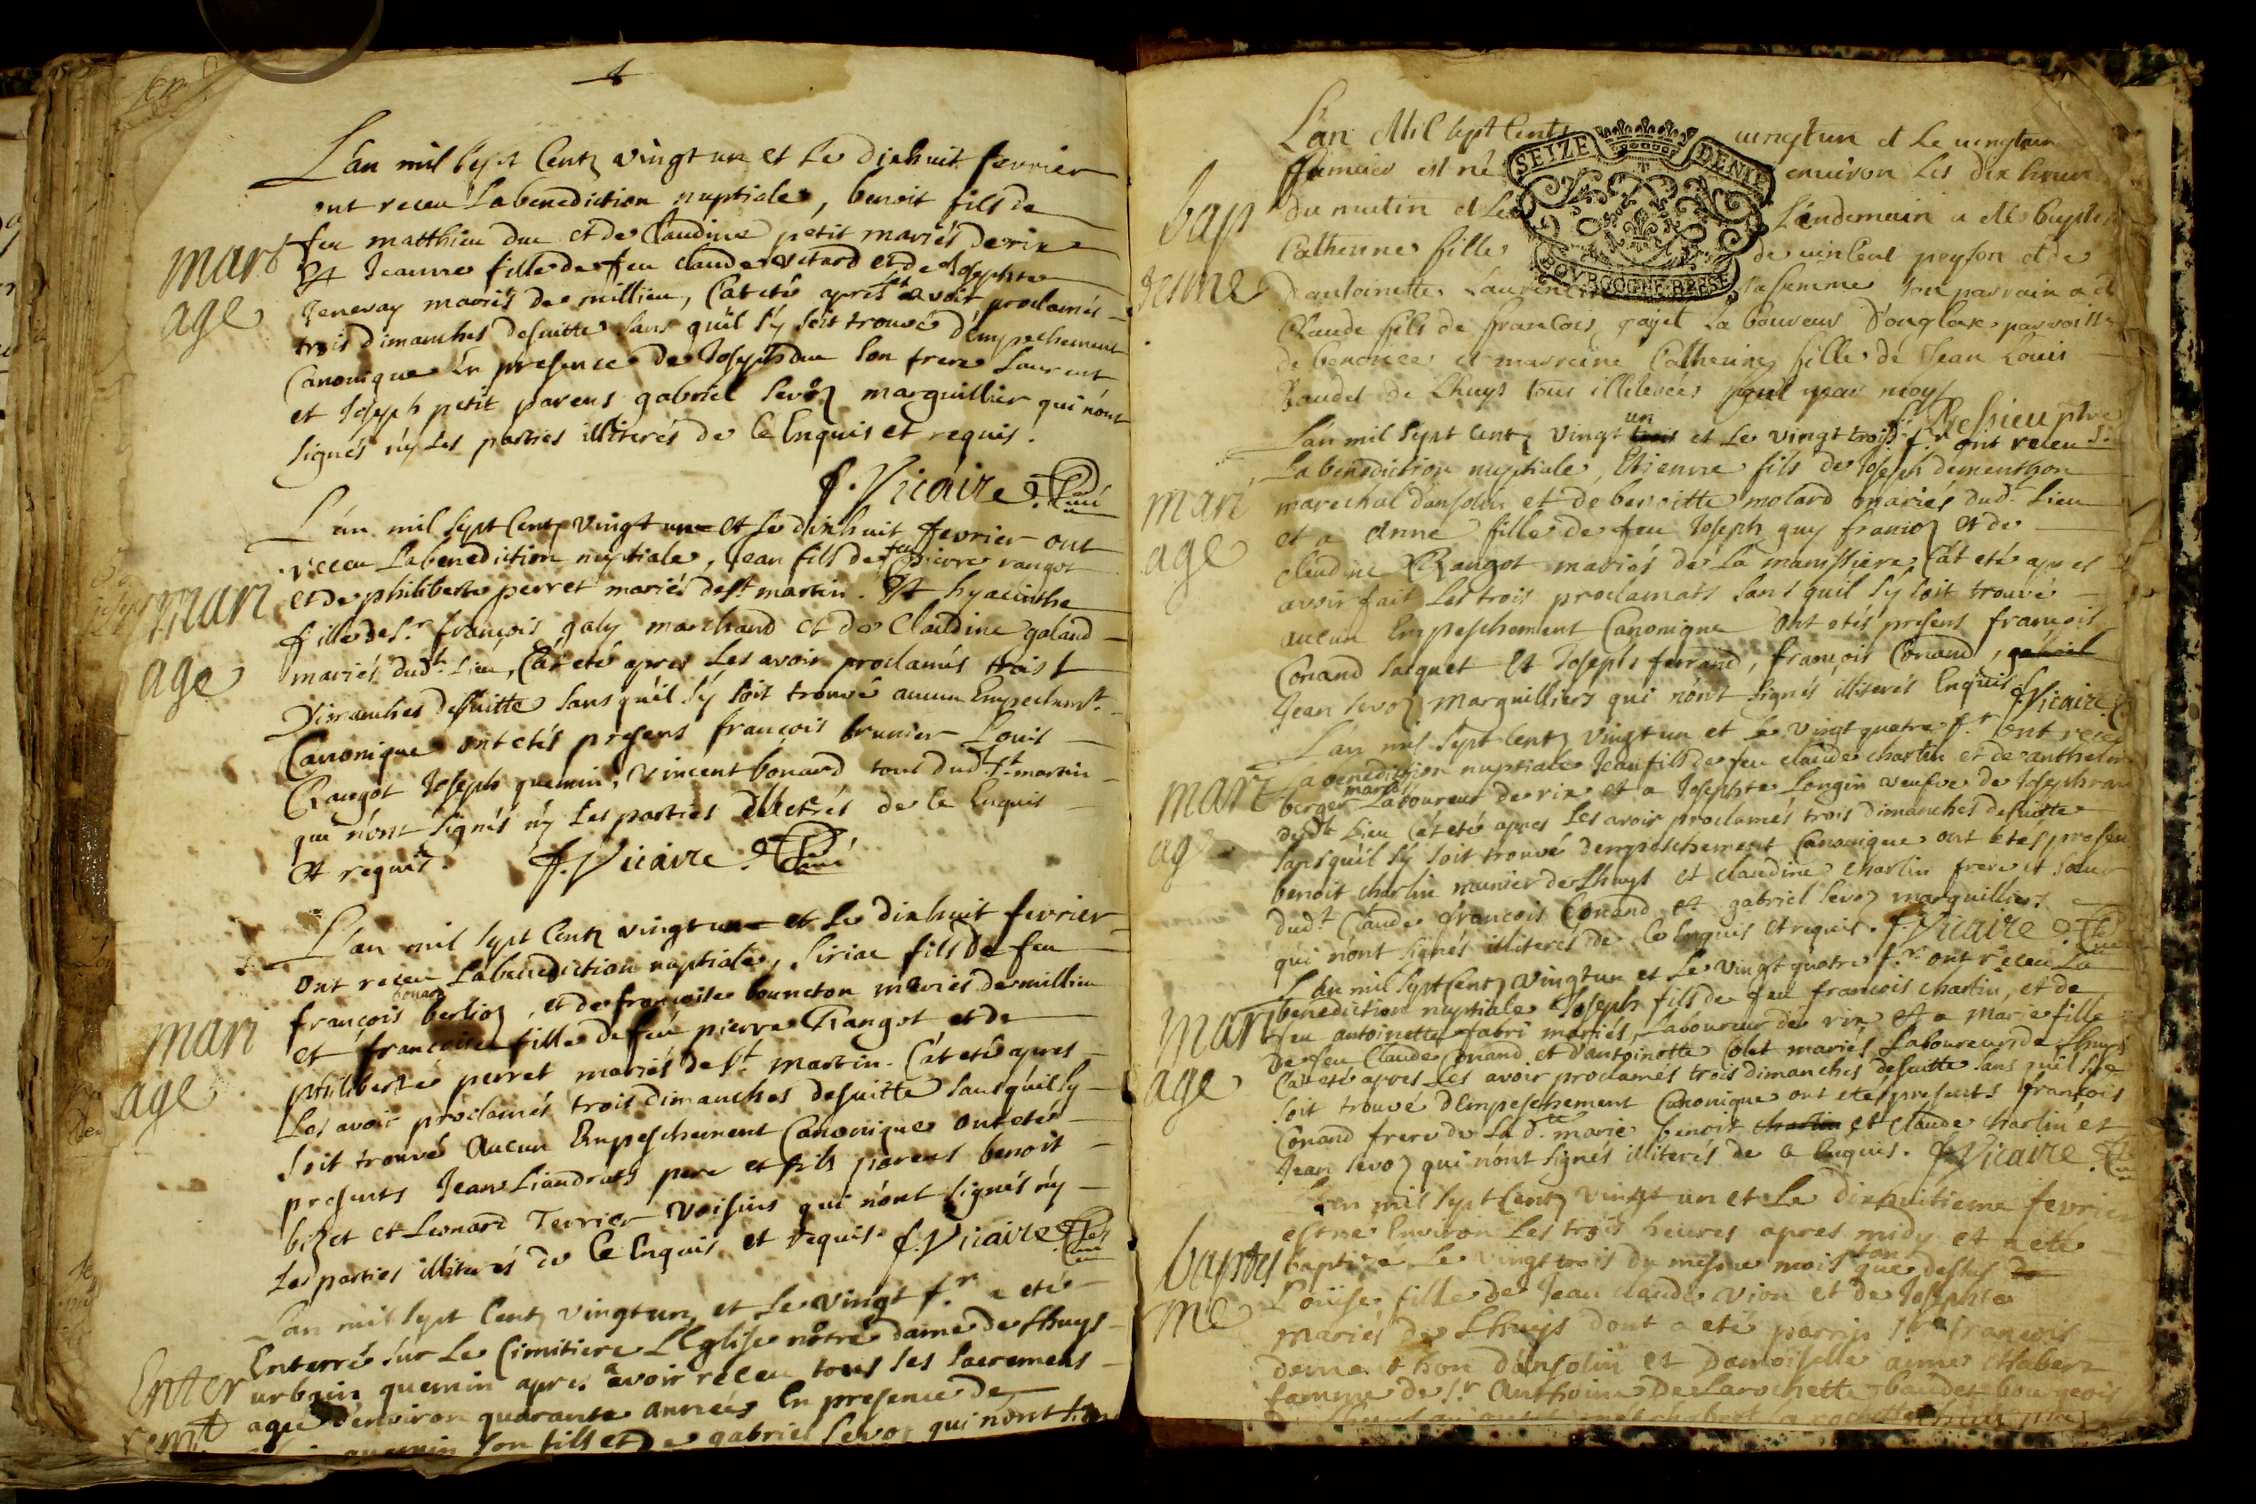 L'an mil sept Centz vingt un et Le dixhuit fevrier
ont receu La benediction nuptiale, benoit fils de
feu matthieu duc et de Claudine petit mariés de rix
Et Jeanne fille de feu claude vetard et de Josephte
Jenevay mariés de millieu, C'at eté apres avoir proclamés
trois dimanches desuitte sans qu'il s'y soit trouvé d'empechement
Canonique En presence de Joseph duc son frere Laurent
et Joseph petit parens gabriel Sevoz marguillier qui n'ont
signés n'y Les parties illiterés de Ce Enquis et requis.
f. Vicaire
mari
age
L'an mil sept Centz vingt un et Le dixhuit fevrier ont
receu La benediction nuptiale, Jean fils de feu pierre rangot
et de philiberte perret mariés de st martin. Et hyacinthe
fille de Sr. françois galy marchand et de Claudine galand
mariés dudt. Lieu, C'at eté apres Les avoir proclamés trois
Dimanches desuitte sans qu'il s'y soit trouvé aucun Empechemt.
Canonique ont etés presens françois brunier Louis
Rangot Joseph quemin, Vincent bonard tous dudt. st. martin
qui n'ont signés n'y Les parties illiterés de Ce Enquis
et requis. f. Vicaire
mari
age
L'an mil sept Centz vingt un et Le dixhuit fevrier
ont receu La benediction nuptiale, Siriac fils de feu
françois bonard berlioz, et de françoise bouncton mariés de millieu
et françoise fille de feu pierre Rangot et de
philiberte perret mariés de st. martin. C'at eté apres
Les avoir proclamés trois dimanches desuitte sans qu'il s'y
soit trouvé Aucun Empeschement Canonique ont eté
presents Jean Liandrats pere et fils parens benoit
bizet et Leonard Terrier voisins qui n'ont signés n'y
Les parties illiterés de Ce Enquis et requis. f. Vicaire
mari
age
L'an mil sept Centz vingt un et Le vingt fr. a eté
Enterré sur Le Cimitiere L'Eglise nôtre dame de Lhuys
urbain quemin apres avoir receu tous Les sacremens
agé d'environ quarante années En presence de
quemin son fils et de gabriel Sevoz qui n'ont
Enter
remt
L'an Mil sept Cents vingtun et Le vingtun
est né environ Les dix heures
du matin et Le Lendemain a eté baptisé
Catherine fille de vincent peyson et de
d'antoinette Sa femme son parrain a eté
Claude fils de françois gajet Laboureur
de benonce et marreine Catherine fille de Jean Louis
baudet de Lhuys tous illiterées
SEIZE DENIE
BOVRGOGNE BRESE
bap
teme
L'an mil sept Centz vingt un trois et Le vingt trois fr. ont receu
La benediction nuptiale, Etienne fils de Joseph dementhon
marechal d'ansolin et de benoitte molard mariés dudt. Lieu
et a Anne fille de feu Joseph guy francoz et de
claudine Rangot mariés de La manissiere, C'at eté apres
avoir fait Les trois proclamats sans qu'il s'y soit trouvé
aucun Empeschement Canonique ont etés presens françois
Conand Jacquet Et Joseph ferrand, françois Conand, gabriel
Jean Sevoz Marguilliers qui n'ont signés illiterés Enquis f. Vicaire
mari
age
L'an mil sept Centz vingt un et Le vingt quatre fr. ont receu
La benediction nuptiale Jean fils de feu claude charlin et de
berger mariés Laboureur de rix et a Josephte Longin veufve de Joseph
dudt. Lieu C'at eté apres Les avoir proclamés trois dimanches desuitte
sans qu'il s'y soit trouvé d'empeschement Canonique ont etés presens
benoit charlin munier de Lhuys et claudine charlin frere et soeur
dudt. Claude françois Conand et gabriel Sevoz marguilliers
qui n'ont signés illiterés de Ce Enquis et requis. f. Vicaire
mari
age
L'an mil sept Centz vingt un et Le vingt quatre fr. ont receu La
benediction nuptiale Joseph fils de feu françois charlin, et de
feu antoinette fabri mariés, Laboureur de rix et a marie fille
de feu Claude Conand et d'antoinette Colet mariés Laboureurs de Lhuys
C'at eté apres Les avoir proclamés trois dimanches desuitte sans qu'il s'y
soit trouvé d'Empeschement Canonique ont etés presents françois
Conand frere de La dte. marie benoit charlin et claude charlin et
Jean Sevoz qui n'ont signés illiterés de Ce Enquis. f. Vicaire
mari
age
L'an mil sept Centz vingt un et Le dixhuitieme fevrier
est né Environ Les trois heures apres midy et a eté
baptizé Le vingt trois du mesme mois que dessus
Louise fille de Jean claude vion et de Josephte
mariés de Lhuys dont a eté parrin Sr. françois
dementhon d'ansolin et Damoiselle anne Chabert
famme de Sr. Anthoine De Larochette baudet bourgeois
baptes
me